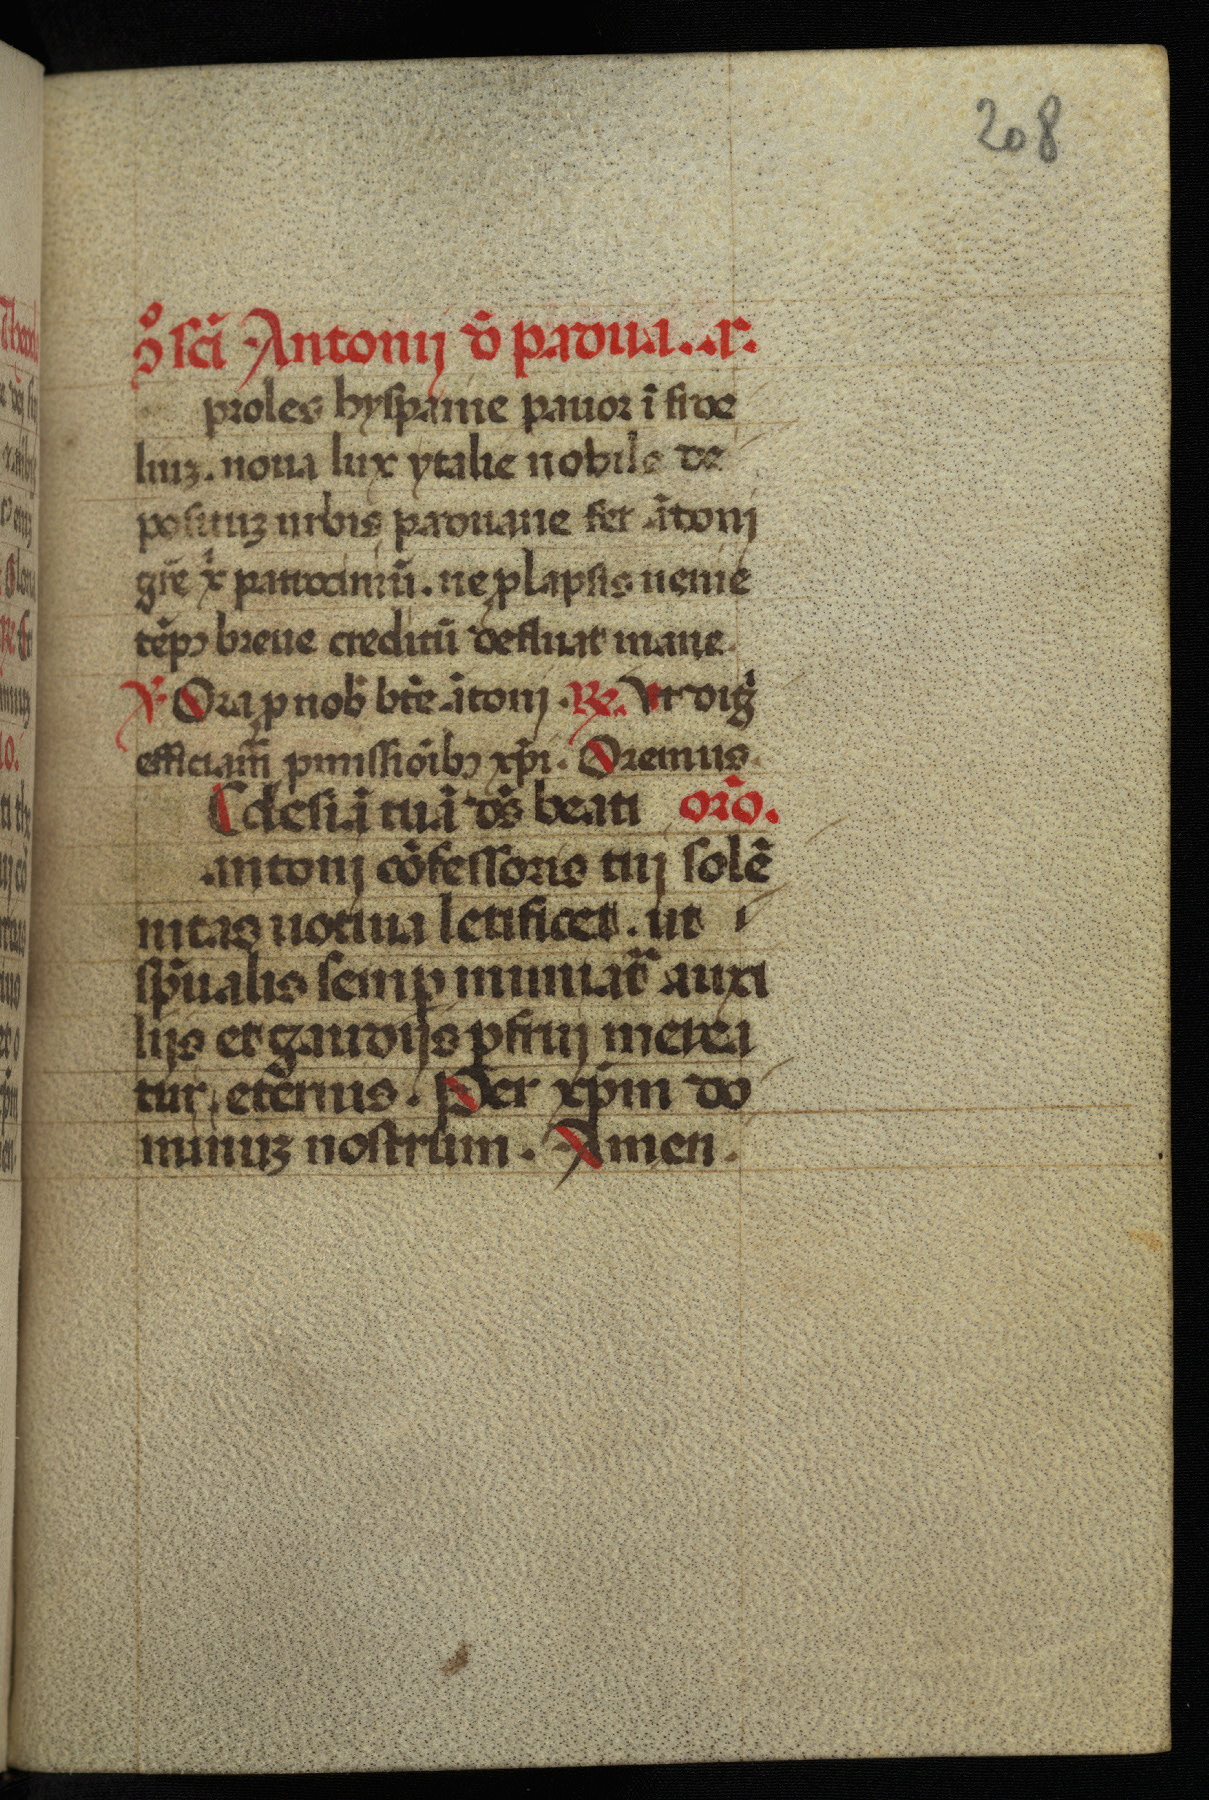 208
ꝯͦ sc̄i Antonij d̄ padua. .a.
proles hyspanie pauor ī fide
liuꝫ. noua lux ytalie nobile de
positiuꝫ urbis paduane fer ātonij
gr̄e xͥ patrociniū. ne ꝓlapsis uenie
tēpꝰ breue creditū defluat inane.
℣. Ora ꝓ nob̄ btē ātonij. ℞. Vt digͥ
efficiam̄ pmissiōibꝰ xp̄i. Oremus.
Ecclesiā tuā ds̄ beati or̄o.
antonij cōfessoris tuj solē
nitas uotiua letificet. ut
sp̄ualis semꝑ muniat᷑ auxi
lijs et gaudijs ꝑfruj merea
tur. et̄ernis. Per xp̄m do
minuꝫ nostrum. Amen.